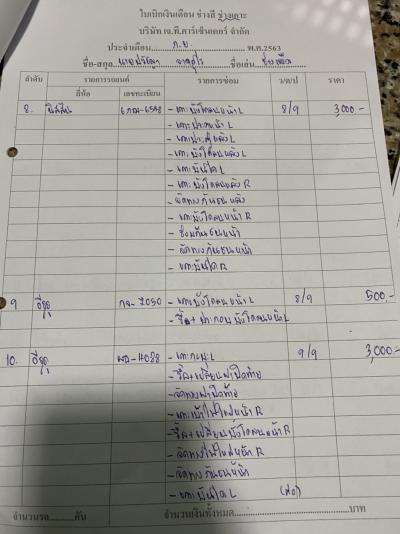 ใบเบิกเงินเดือน ช่างสี ช่างเคาะ
บริษัท เจ.ที.คาร์เซ็นเตอร์ จำกัด
ประจำเดือน ก.ย. พ.ศ.2563
ชื่อ-สกุล ชื่อเล่น
ลำดับ รายการรถยนต์ รายการซ่อม ว/ด/ป ราคา
สี่หัด เลขทะเบียน
8. นิสสัน - เคาะบังโคลนหน้า L 8/9 3,000.-
- เคาะประตูหน้า L
- เคาะประตูหลัง L
- เคาะบังโคลนหลัง L
- เคาะบันได L
- เคาะบังโคลนหลัง R
- จัดทางกันชนหลัง
- เคาะบังโคลนหน้า R
- ซ่อมกันชนหน้า
- จัดทางกันชนหน้า
- เคาะบันได R
9 อีซูซุ กจ-7050 - เคาะบังโคลนหน้า L 8/9 500.-
- รื้อ+ประกอบบังโคลนหน้า L
10. อีซูซุ - เคาะกะบะ L 9/9 3,000.-
- รื้อ+เปลี่ยนฝาปิดท้าย
- จัดทางฝาปิดท้าย
- เคาะเบ้าไฟใหญ่หน้า R
- รื้อ+เปลี่ยนบังโคลนหน้า R
- จัดทางไฟใหญ่หน้า R
- จัดทางกันชนหน้า
- เคาะบันได L (ต่อ)
จำนวนรถ คัน จำนวนเงินทั้งหมด บาท